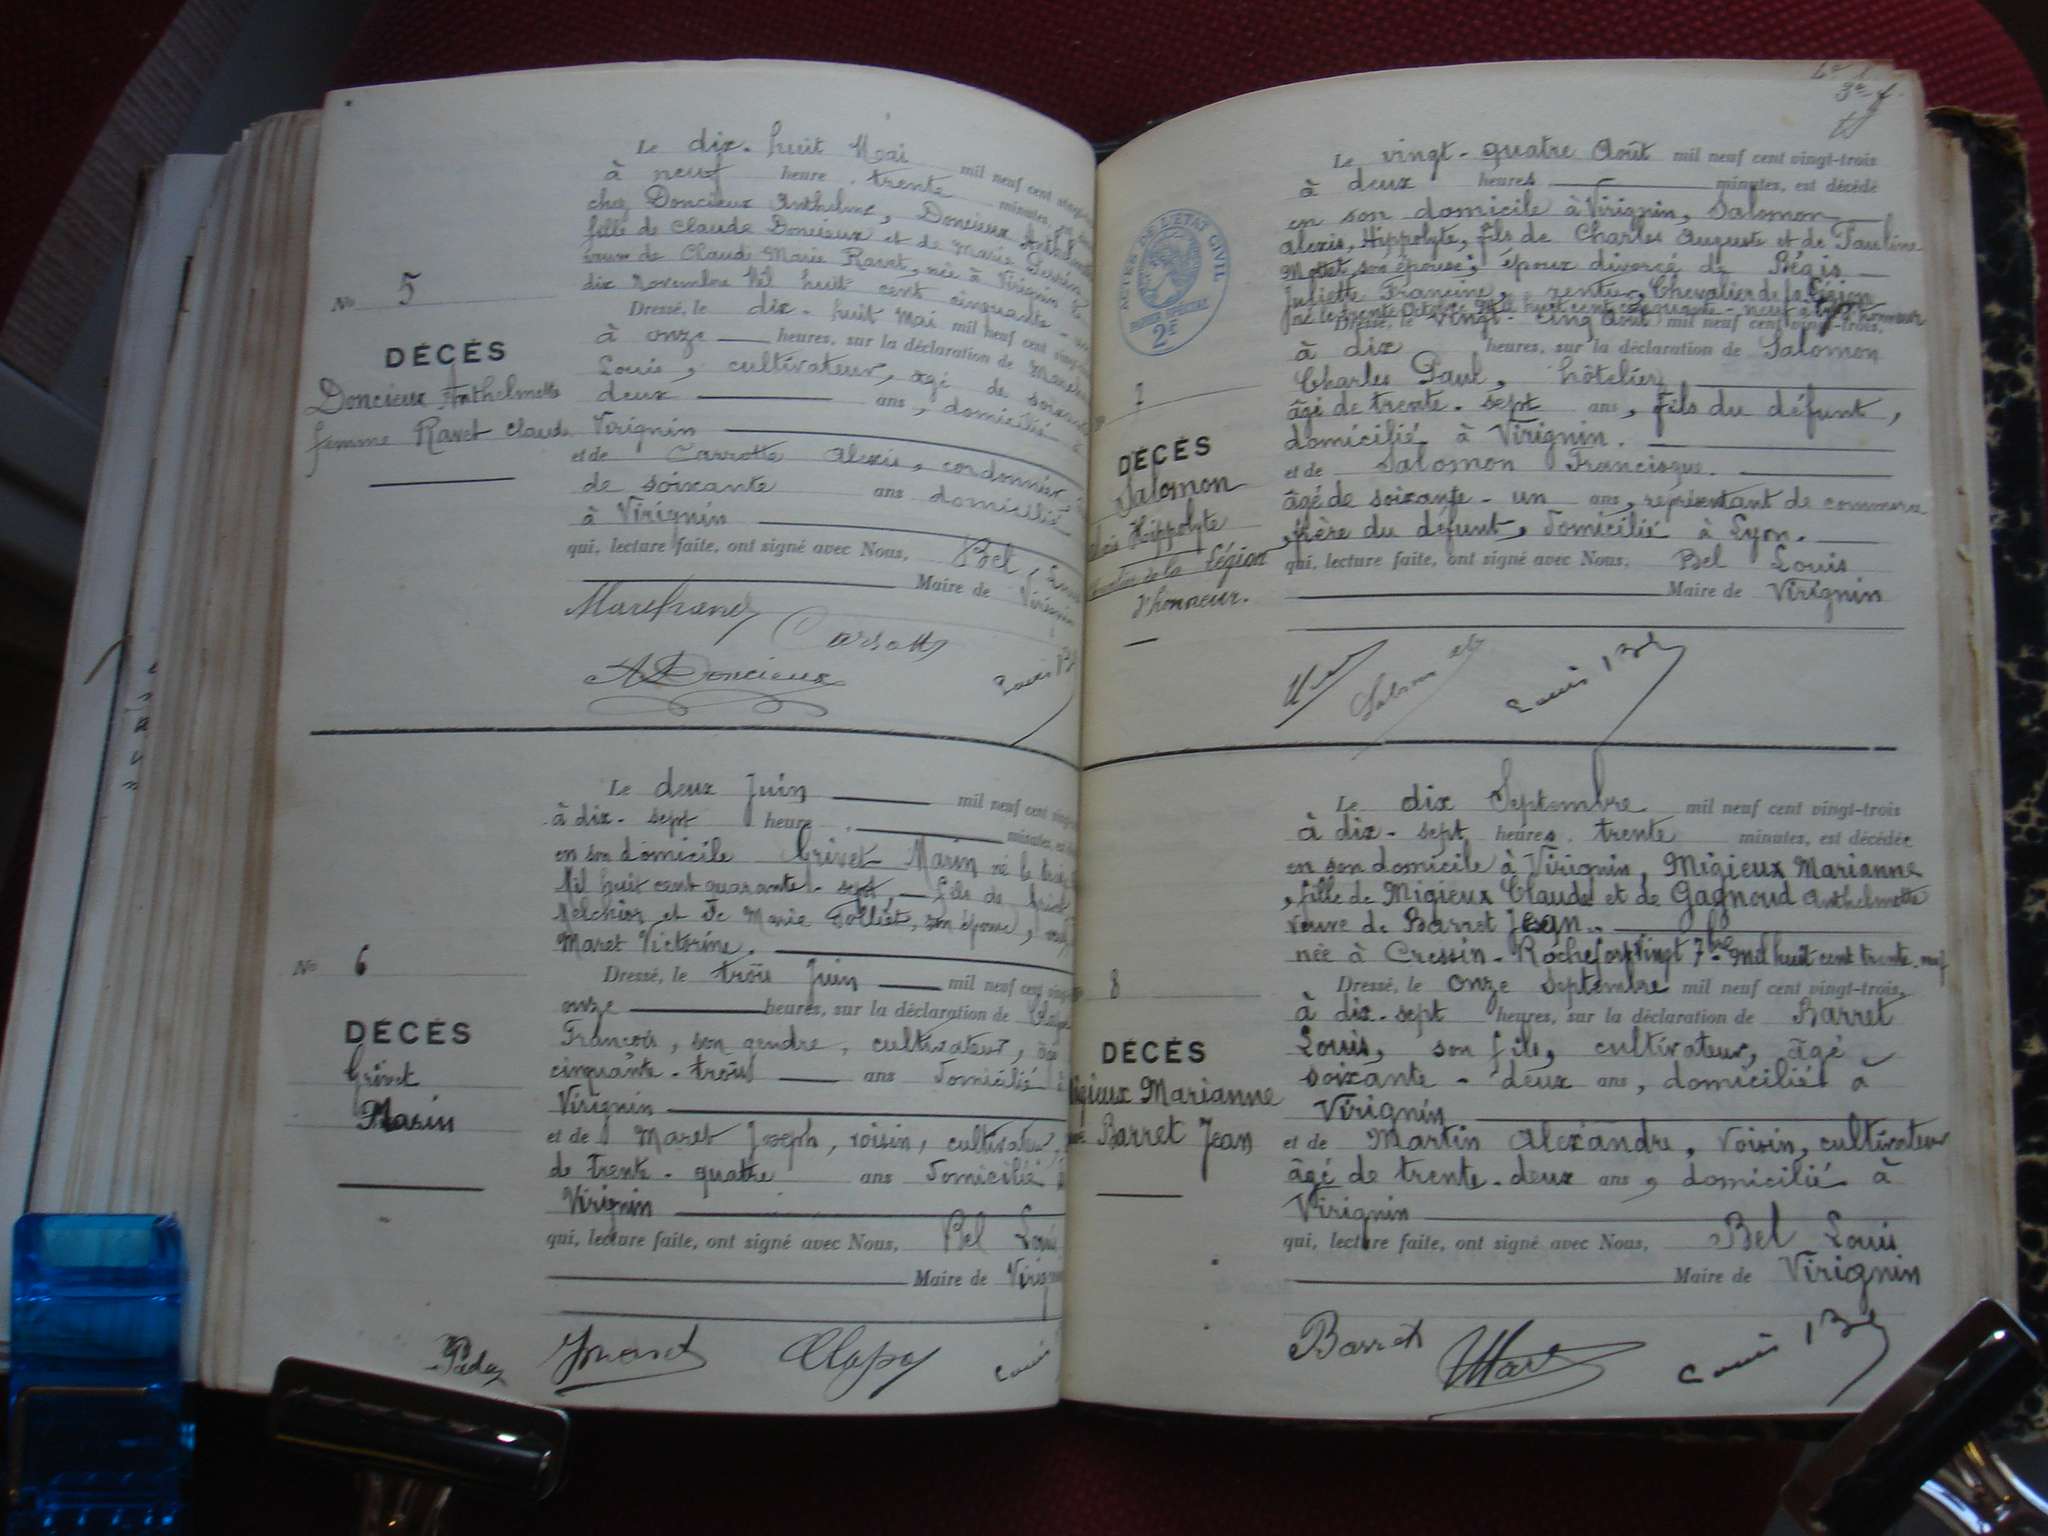 Le dix-huit Mai mil neuf cent vingt-
à neuf heure trente minutes,
chez Doncieux Anthelme, Doncieux
fille de Claude Doncieux et de Marie Perrin
de Claude Marie Ravet, née à Virignin le
dix Novembre Mil huit cent cinquante-
No 5
Dressé, le dix-huit Mai mil neuf cent vingt-
à onze heures, sur la déclaration de
DÉCÈS
Louis, cultivateur, âgé de soixante
Doncieux Anthelmette
deux ans, domicilié à
femme Ravet Claude
Virignin
et de Carrotte Alexis, cordonnier
de soixante ans domicilié
à Virignin
qui, lecture faite, ont signé avec Nous, Bel Louis
Maire de Virignin
Marchand
A Doncieux Louis Bel
Le deux Juin mil neuf cent vingt-
à dix-sept heure minutes,
en son domicile Grivet Marin né le
Mil huit cent quarante-sept, fils de
Melchior et de Marie Dolliet, son épouse,
Maret Victorine.
No 6
Dressé, le trois Juin mil neuf cent vingt-
onze heures, sur la déclaration de
DÉCÈS
François, son gendre, cultivateur, âgé
Grivet
cinquante-trois ans domicilié à
Marin
Virignin
et de Maret Joseph, voisin, cultivateur,
de trente-quatre ans domicilié à
Virignin
qui, lecture faite, ont signé avec Nous, Bel Louis
Maire de Virignin
Louis
3e f
Le vingt-quatre Août mil neuf cent vingt-trois
à deux heures minutes, est décédé
en son domicile à Virignin, Salomon
Alexis, Hippolyte, fils de Charles Auguste et de Pauline
Mottet, son épouse; époux divorcé de Bégis
Juliette Francine, rentier, Chevalier de la Légion
né le trente Octobre Mil huit cent cinquante-neuf à Lyon d'honneur
ACTES DE L'ÉTAT CIVIL
PAPIER SPÉCIAL
2E
Dressé, le vingt-cinq Août mil neuf cent vingt-trois,
à dix heures, sur la déclaration de Salomon
Charles Paul, hôtelier
7
âgé de trente-sept ans, fils du défunt,
domicilié à Virignin.
DÉCÈS
Salomon
Hippolyte
de la Légion
d'honneur.
et de Salomon Francisque.
âgé de soixante-un ans, représentant de commerce
frère du défunt, domicilié à Lyon.
qui, lecture faite, ont signé avec Nous, Bel Louis
Maire de Virignin
Salomon Louis Bel
Le dix Septembre mil neuf cent vingt-trois
à dix-sept heures trente minutes, est décédée
en son domicile à Virignin, Migieux Marianne
, fille de Migieux Claude et de Gagnoud Anthelmette
veuve de Barret Jean.
née à Cressin-Rochefort vingt 7bre Mil huit cent trente-neuf
8
Dressé, le onze Septembre mil neuf cent vingt-trois,
à dix-sept heures, sur la déclaration de Barret
DÉCÈS
Louis, son fils, cultivateur, âgé
Migieux Marianne
soixante-deux ans, domicilié à
Virignin
Barret Jean
et de Martin Alexandre, voisin, cultivateur
âgé de trente-deux ans, domicilié à
Virignin
qui, lecture faite, ont signé avec Nous, Bel Louis
Maire de Virignin
Barret Louis Bel